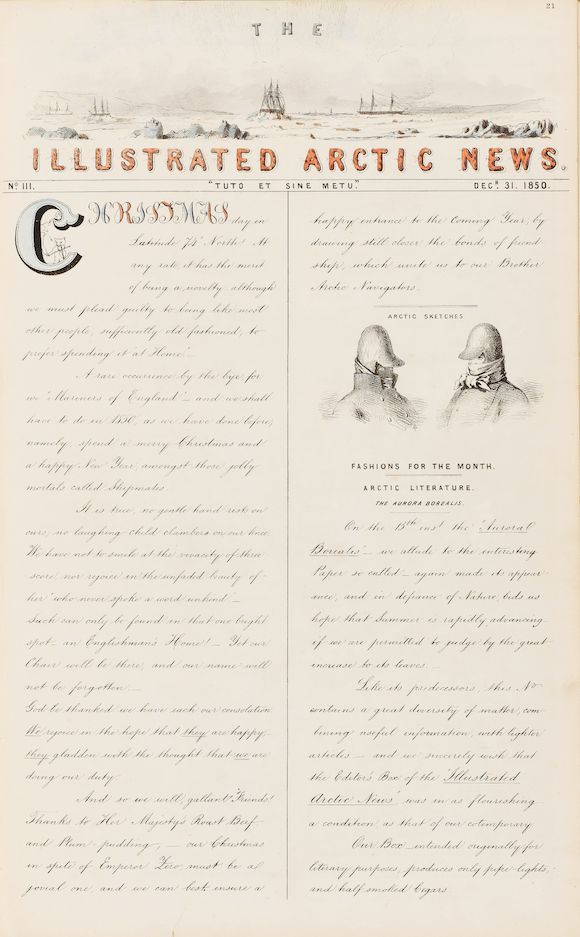 21
THE
ILLUSTRATED ARCTIC NEWS.
No. III.
"TUTO ET SINE METU."
DECR. 31. 1850.
CHRISTMAS day in
Latitude 74° North! At
any rate, it has the merit
of being a novelty, although
we must plead guilty to being like most
other people, sufficiently old fashioned, to
prefer spending it 'at Home'.—
A rare occurrence by the bye for
we 'Mariners of England'— and we shall
have to do in 1850, as we have done before,
namely, spend a merry Christmas and
a happy New Year, amongst those jolly
mortals called Shipmates.
It is true, no gentle hand rests on
ours, no laughing child clambers on our knee.
We have not to smile at the vivacity of three
score, nor rejoice in the unfaded beauty of
her 'who never spoke a word unkind'—
Such can only be found in that one bright
spot— an Englishman's Home!— Yet our
Chair will be there, and our name will
not be forgotten.—
God be thanked we have such our consolation.
We rejoice in the hope that they are happy,
they gladden with the thought that we are
doing our duty.
And so we will, gallant Friends!
Thanks to Her Majesty's Roast Beef,
and Plum-pudding,— our Christmas
in spite of Emperor Zero, must be a
jovial one, and we can best insure a
happy entrance to the Coming Year, by
drawing still closer the bonds of friend
ship, which unite us to our Brother
Arctic Navigators.
ARCTIC SKETCHES
FASHIONS FOR THE MONTH.
ARCTIC LITERATURE.
THE AURORA BOREALIS.
On the 15th inst. the 'Aurora
Borealis'— we allude to the interesting
Paper so called— again made its appear
ance, and in defiance of Nature, bids us
hope that Summer is rapidly advancing—
if we are permitted to judge by the great
increase to its leaves.—
Like its predecessors, this No
contains a great diversity of matter, com
bining useful information, with lighter
articles— and we sincerely wish that
the Editor's Box of the 'Illustrated
Arctic News' was in as flourishing
a condition, as that of our cotemporary.
Our Box— intended originally for
literary purposes, produces only pipe-lights,
and half smoked Cigars.